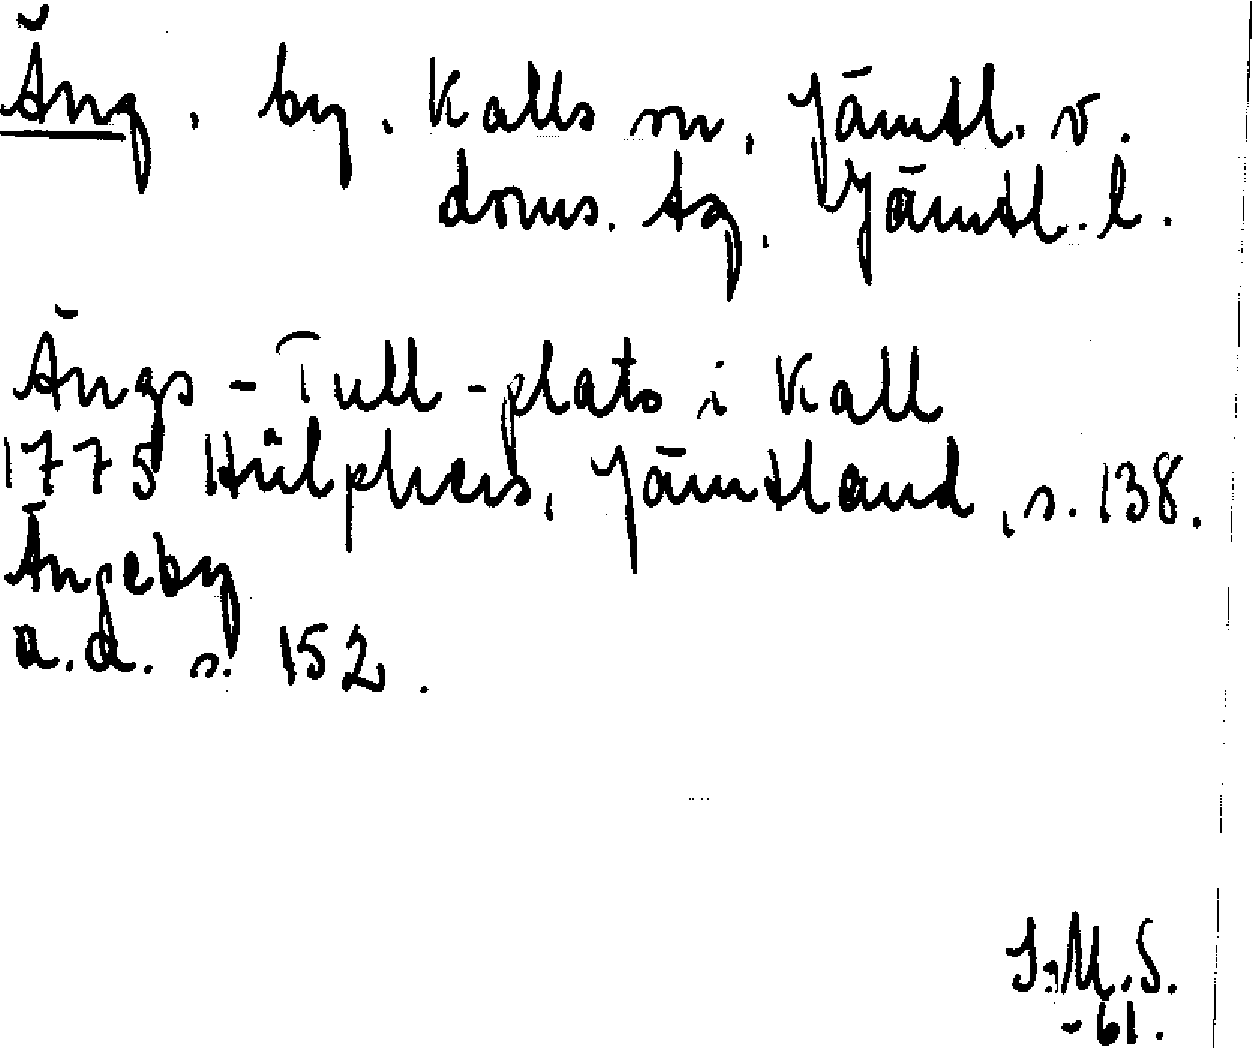 Äng, by, Kalls sn, Jämtl. v.
doms. tg, Jämtl. l.
Ängs-Tull-plats i Kall
1775 Hülphers, Jämtland, s. 138.
Ängeby
a.a. s. 152.
I.M.S.
-61.